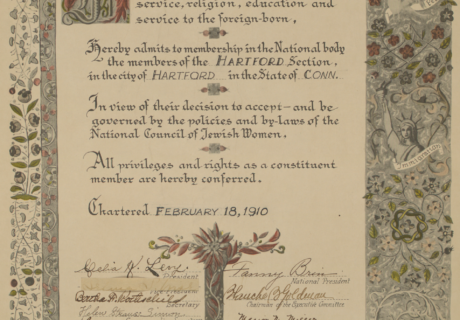 service, religion, education and
service to the foreign-born,
Hereby admits to membership in the National body
the members of the HARTFORD Section,
in the city of HARTFORD in the State of CONN.
In view of their decision to accept—and be-
governed by the policies and by-laws of the
National Council of Jewish Women.
All privileges and rights as a constituent
member are hereby conferred.
Chartered FEBRUARY 18, 1910
Celia N. Levy Fanny Brin
President National President
Vice President Blanche Goldman
Secretary Chairman of the Executive Committee
Helen